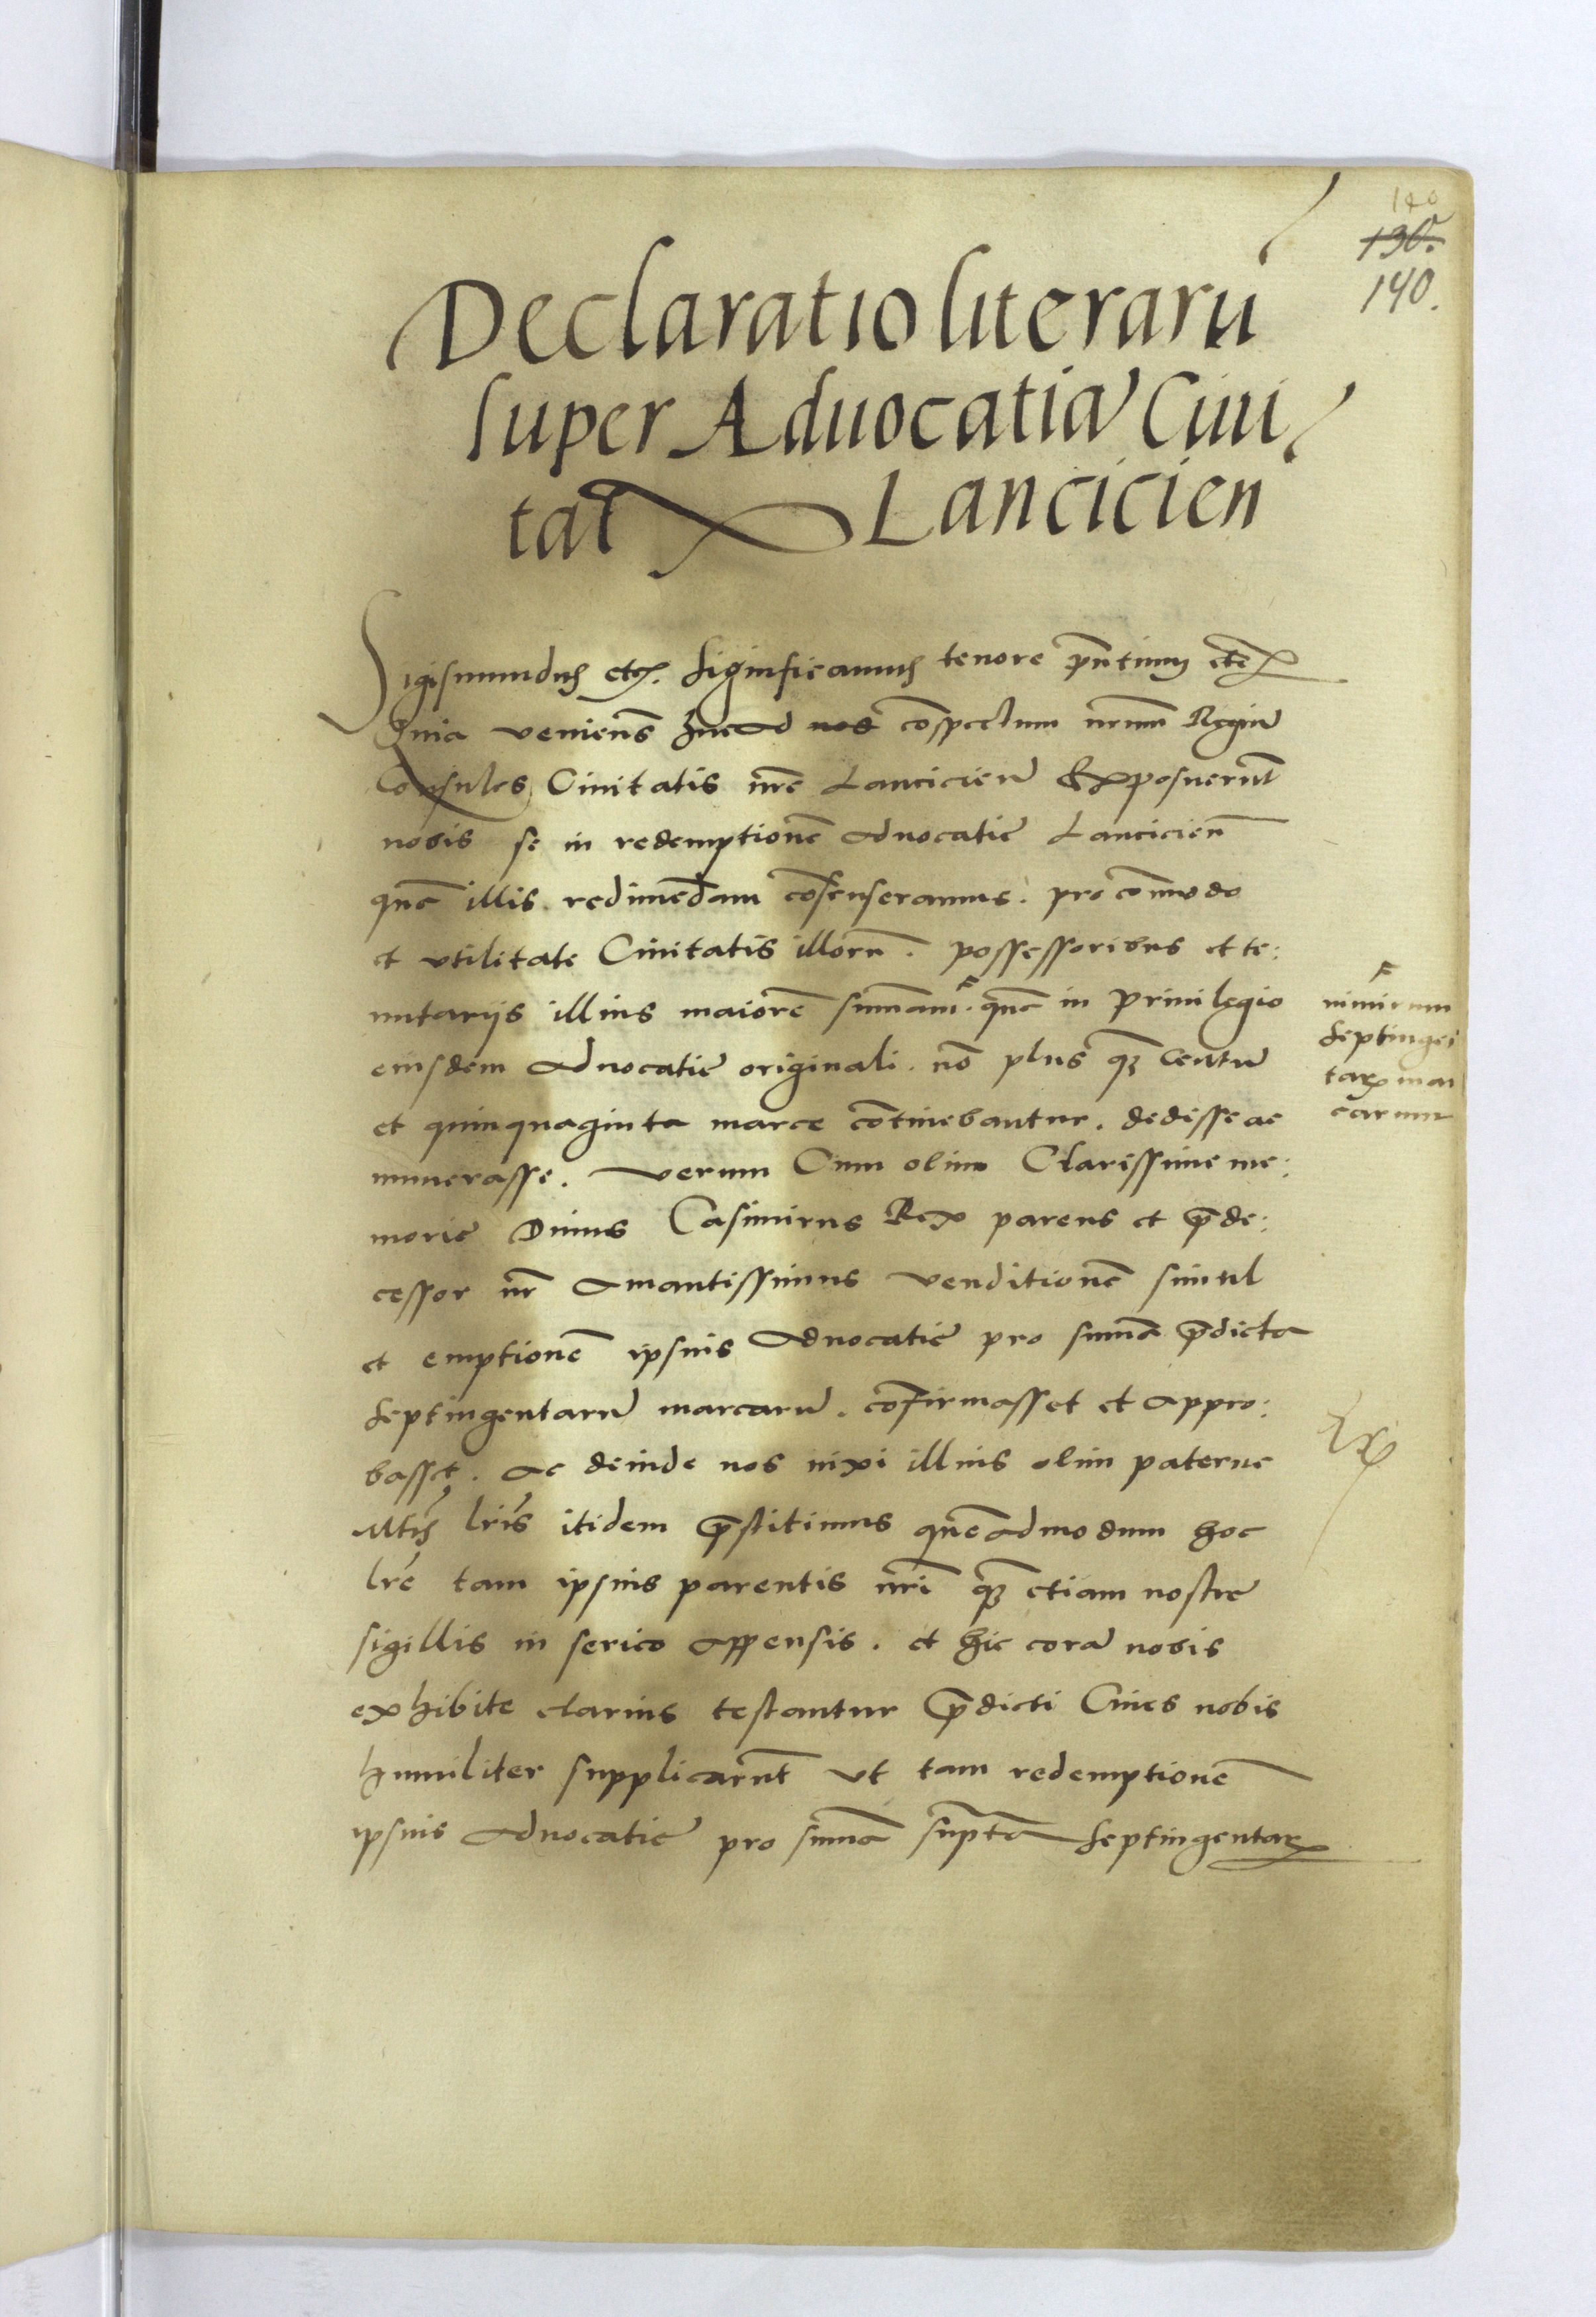 140
130.
140.
Declaratio literarū
super Aduocatia Ciui
tat Lancicien
Sigismundus etc. Significamus tenore pn̄tium etc
Quia veniens huc ad nos cōspectum nr̄um Regiū
Consules Ciuitatis nr̄e Lancicien̄ Exposuerūt
nobis se in redemptionē aduocatie Lancicien̄
quē illis redimēdam cōsenseramus. pro cōmodo
et vtilitate Ciuitatis illorū. possessoribus et te:
nutarijs illius maiorē sum̄am quē in Priuilegio
eiusdem aduocatie originali. nō plus q̄ȝ Centū
et quinquaginta marce cōtinebantur. dedisse ac
numerasse. verum Cum olim Clarissime me:
morie Diuus Casimirus Rex parens et p̄de:
cessor nr̄ amantissimus venditionē simul
et emptionē ipsius Aduocatie pro sum̄a p̄dicta
septingentarū marcarū. cōfirmasset et appro:
basset. ac deinde nos nixi illius olim paterne
Mtis lr̄is itidem p̄stitimus quēadmodum hoc
lr̄e tam ipsius parentis nr̄i q̄ȝ etiam nostre
sigillis in serico appensis. et hic corā nobis
exhibite clarius testantur p̄dicti Ciues nobis
humiliter supplicarūt vt tam redemptionē
ipsius aduocatie pro sum̄a sup̄ta septingentarꝝ
nimirum
septingen
tarꝝ mar
carum